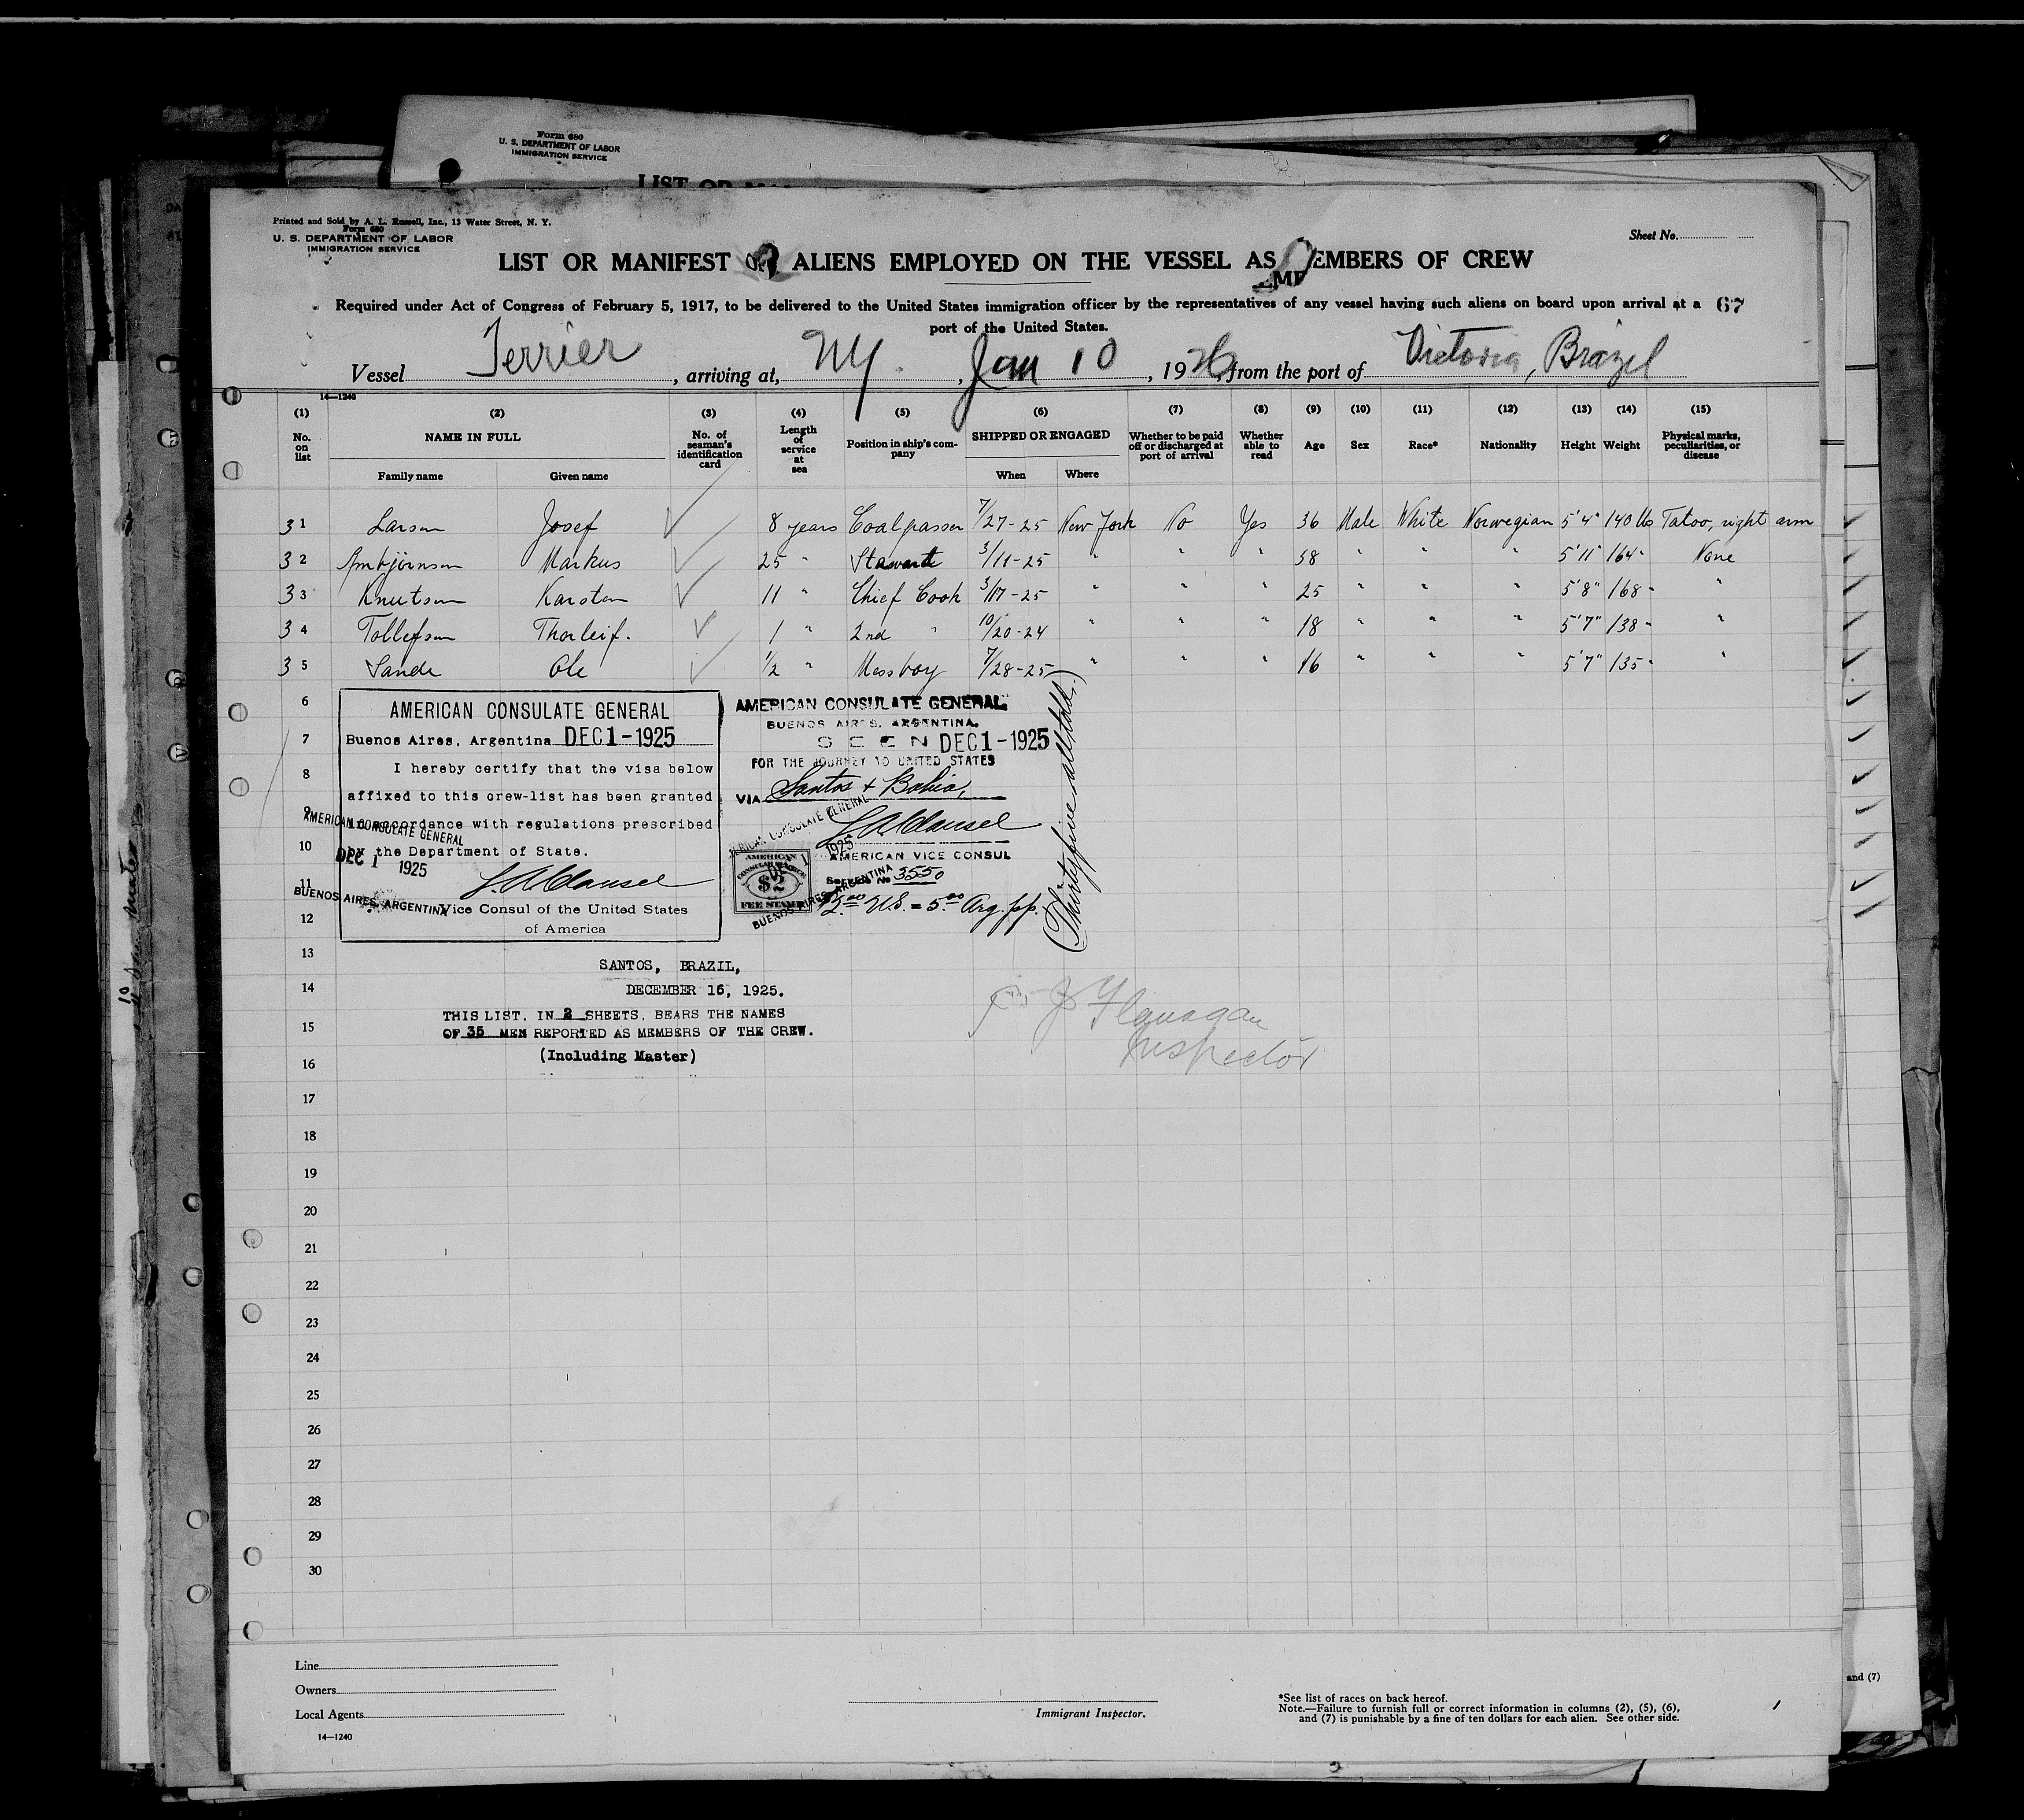 Form 680
U. S. DEPARTMENT OF LABOR
IMMIGRATION SERVICE
Printed and Sold by A. L. Russell, Inc., 13 Water Street, N. Y.
Form 680
U. S. DEPARTMENT OF LABOR
IMMIGRATION SERVICE
Sheet No.
LIST OR MANIFEST OF ALIENS EMPLOYED ON THE VESSEL AS MEMBERS OF CREW
Required under Act of Congress of February 5, 1917, to be delivered to the United States immigration officer by the representatives of any vessel having such aliens on board upon arrival at a 67
port of the United States.
Vessel Terrier, arriving at, NY., Jan 10, 1926, from the port of Victoria, Brazil
14—1240
(1) (2) (3) (4) (5) (6) (7) (8) (9) (10) (11) (12) (13) (14) (15)
No. on list NAME IN FULL No. of seaman's identification card Length of service at sea Position in ship's company SHIPPED OR ENGAGED Whether to be paid off or discharged at port of arrival Whether able to read Age Sex Race* Nationality Height Weight Physical marks, peculiarities, or disease
Family name Given name When Where
31 Larsen Josef 8 years Coalpasser 7/27-25 New York No Yes 36 Male White Norwegian 5'4" 140 lbs Tatoo, right arm
32 Markus 25 " 3/11-25 " " " 38 " " " 5'11" 164 " None
33 Knutsen Karsten 11 " Chief Cook 3/17-25 " " " 25 " " " 5'8" 168 " "
34 Tollefsen Thorleif. 1 " 2nd " 10/20-24 " " " 18 " " " 5'7" 138 " "
35 Sande Ole 1/2 " Messboy 7/28-25 " " " 16 " " " 5'7" 135 " "
6
7
8
9
10
11
12
AMERICAN CONSULATE GENERAL
Buenos Aires, Argentina DEC 1 - 1925
I hereby certify that the visa below
affixed to this crew-list has been granted
in accordance with regulations prescribed
by the Department of State.
Vice Consul of the United States
of America
AMERICAN CONSULATE GENERAL
DEC 1 1925
BUENOS AIRES, ARGENTINA
AMERICAN CONSULATE GENERAL
BUENOS AIRES, ARGENTINA.
SEEN DEC 1 - 1925
FOR THE JOURNEY TO UNITED STATES
VIA Santos & Bahia,
AMERICAN VICE CONSUL
Service No 3550
$2.00 U.S. = 5.00 Arg. pp.
AMERICAN
CONSULAR SERVICE
$2
FEE STAMP
AMERICAN CONSULATE GENERAL
DEC 1 1925
BUENOS AIRES, ARGENTINA
(Thirtyfive all told.)
13
SANTOS, BRAZIL,
14
DECEMBER 16, 1925.
THIS LIST, IN 2 SHEETS, BEARS THE NAMES
15
OF 35 MEN REPORTED AS MEMBERS OF THE CREW.
(Including Master)
Flanagan
Inspector
16
17
18
19
20
21
22
23
24
25
26
27
28
29
30
Line
Owners
Local Agents
14—1240
Immigrant Inspector.
*See list of races on back hereof.
Note.—Failure to furnish full or correct information in columns (2), (5), (6),
and (7) is punishable by a fine of ten dollars for each alien. See other side.
and (7)